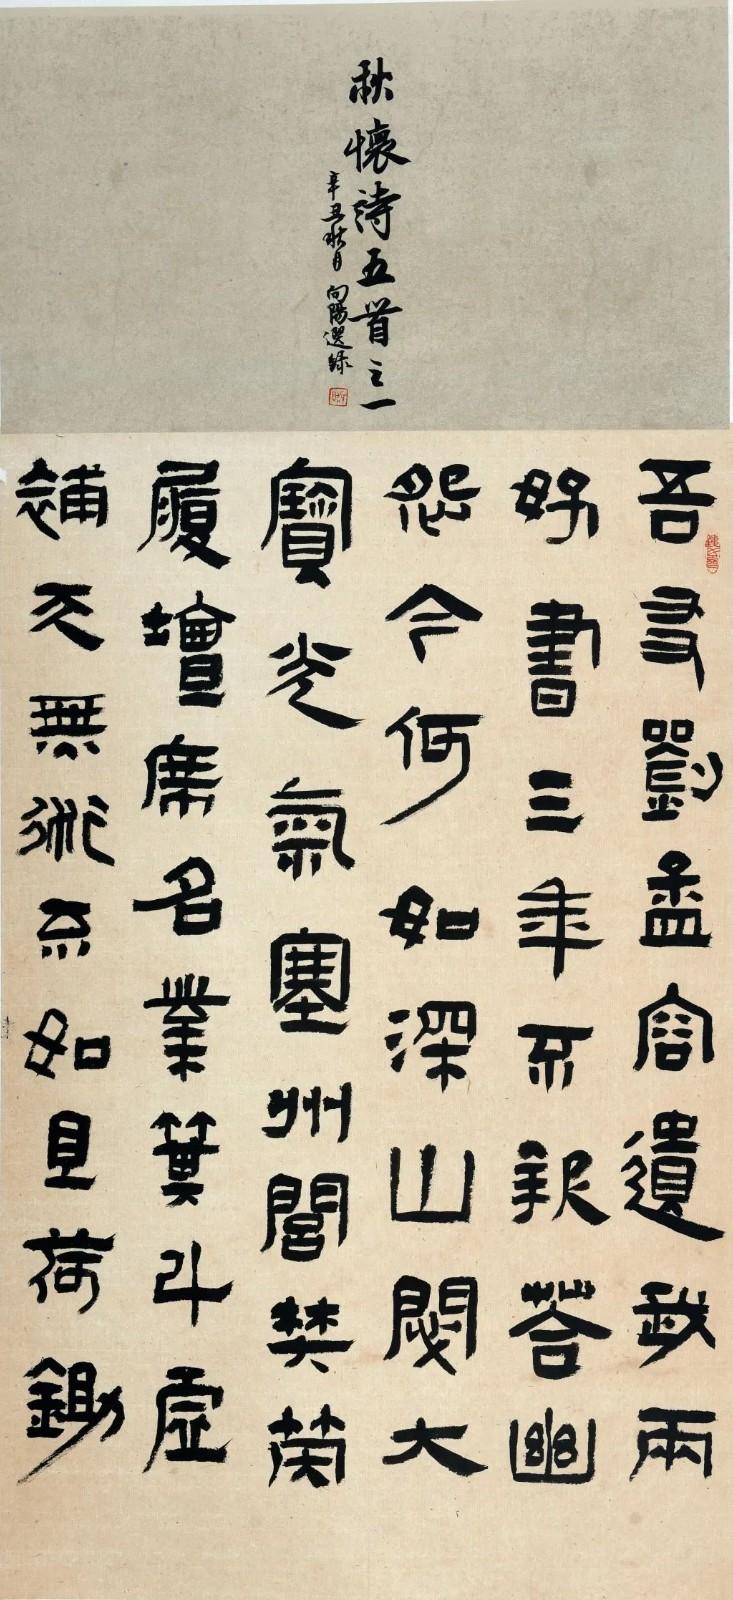 秋懷詩五首之一
辛丑秋月向陽選錄
吾友劉孟容遺我兩
好書三年不報答幽
怨今何如深山閟大
寶光氣塞州閭樊英
履壇席名業箕斗虛
補天無術不如且荷鋤